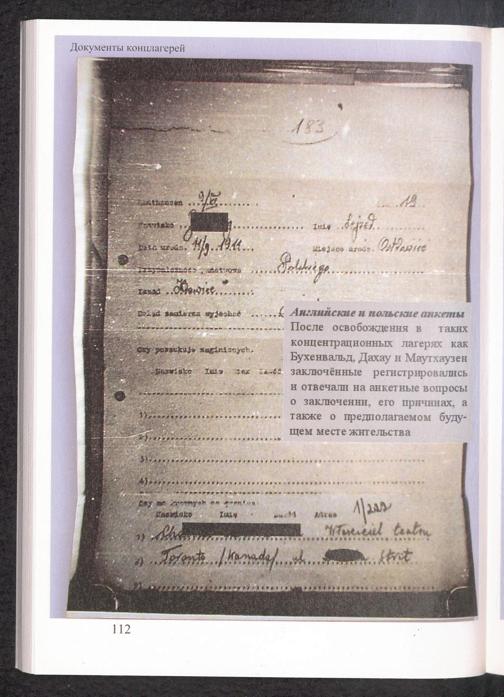 Документы концлагерей
183
Mauthausen 9/VI 19
Nazwisko Imię Józef
Data urodz. 11/9 1911 Miejsce urodz.
Przynależność państwowa Polskiego
Zawód
Dokąd zamierza wyjechać
Английские и польские анкеты
После освобождения в таких
концентрационных лагерях как
Бухенвальд, Дахау и Маутхаузен
заключённые регистрировались
и отвечали на анкетные вопросы
о заключении, его причинах, а
также о предполагаемом буду-
щем месте жительства
Czy poszukuje zaginionych.
Nazwisko Imię
1)
2)
3)
4)
Czy ma krewnych za granicą:
Nazwisko Imię Adres 1/222
1) Właściciel teatru
2) Toronto /Kanada/ ul Strit
112